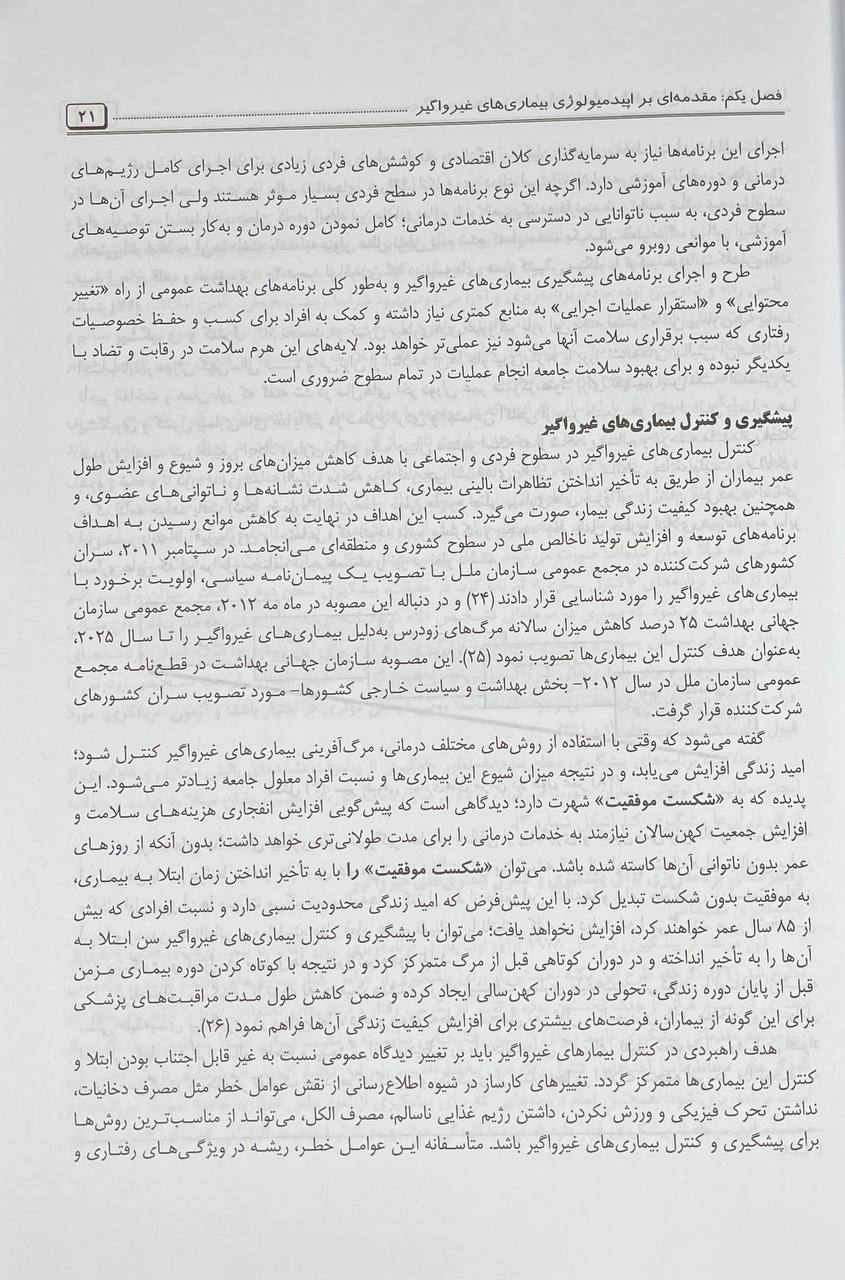 فصل یکم: مقدمه‌ای بر اپیدمیولوژی بیماری‌های غیرواگیر ........................................ ۲۱
اجرای این برنامه‌ها نیاز به سرمایه‌گذاری کلان اقتصادی و کوشش‌های فردی زیادی برای اجرای کامل رژیم‌های
درمانی و دوره‌های آموزشی دارد. اگرچه این نوع برنامه‌ها در سطح فردی بسیار موثر هستند ولی اجرای آن‌ها در
سطوح فردی، به سبب ناتوانایی در دسترسی به خدمات درمانی؛ کامل نمودن دوره درمان و به‌کار بستن توصیه‌های
آموزشی، با موانعی روبرو می‌شود.
طرح و اجرای برنامه‌های پیشگیری بیماری‌های غیرواگیر و به‌طور کلی برنامه‌های بهداشت عمومی از راه «تغییر
محتوایی» و «استقرار عملیات اجرایی» به منابع کمتری نیاز داشته و کمک به افراد برای کسب و حفظ خصوصیات
رفتاری که سبب برقراری سلامت آنها می‌شود نیز عملی‌تر خواهد بود. لایه‌های این هرم سلامت در رقابت و تضاد با
یکدیگر نبوده و برای بهبود سلامت جامعه انجام عملیات در تمام سطوح ضروری است.
پیشگیری و کنترل بیماری‌های غیرواگیر
کنترل بیماری‌های غیرواگیر در سطوح فردی و اجتماعی با هدف کاهش میزان‌های بروز و شیوع و افزایش طول
عمر بیماران از طریق به تأخیر انداختن تظاهرات بالینی بیماری، کاهش شدت نشانه‌ها و ناتوانی‌های عضوی، و
همچنین بهبود کیفیت زندگی بیمار، صورت می‌گیرد. کسب این اهداف در نهایت به کاهش موانع رسیدن به اهداف
برنامه‌های توسعه و افزایش تولید ناخالص ملی در سطوح کشوری و منطقه‌ای می‌انجامد. در سپتامبر ۲۰۱۱، سران
کشورهای شرکت‌کننده در مجمع عمومی سازمان ملل با تصویب یک پیمان‌نامه سیاسی، اولویت برخورد با
بیماری‌های غیرواگیر را مورد شناسایی قرار دادند (۲۴) و در دنباله این مصوبه در ماه مه ۲۰۱۲، مجمع عمومی سازمان
جهانی بهداشت ۲۵ درصد کاهش میزان سالانه مرگ‌های زودرس به‌دلیل بیماری‌های غیرواگیر را تا سال ۲۰۲۵،
به‌عنوان هدف کنترل این بیماری‌ها تصویب نمود (۲۵). این مصوبه سازمان جهانی بهداشت در قطع‌نامه مجمع
عمومی سازمان ملل در سال ۲۰۱۲- بخش بهداشت و سیاست خارجی کشورها- مورد تصویب سران کشورهای
شرکت‌کننده قرار گرفت.
گفته می‌شود که وقتی با استفاده از روش‌های مختلف درمانی، مرگ‌آفرینی بیماری‌های غیرواگیر کنترل شود؛
امید زندگی افزایش می‌یابد، و در نتیجه میزان شیوع این بیماری‌ها و نسبت افراد معلول جامعه زیادتر می‌شود. این
پدیده که به «شکست موفقیت» شهرت دارد؛ دیدگاهی است که پیش‌گویی افزایش انفجاری هزینه‌های سلامت و
افزایش جمعیت کهن‌سالان نیازمند به خدمات درمانی را برای مدت طولانی‌تری خواهد داشت؛ بدون آنکه از روزهای
عمر بدون ناتوانی آن‌ها کاسته شده باشد. می‌توان «شکست موفقیت» را با به تأخیر انداختن زمان ابتلا به بیماری،
به موفقیت بدون شکست تبدیل کرد. با این پیش‌فرض که امید زندگی محدودیت نسبی دارد و نسبت افرادی که بیش
از ۸۵ سال عمر خواهند کرد، افزایش نخواهد یافت؛ می‌توان با پیشگیری و کنترل بیماری‌های غیرواگیر سن ابتلا به
آن‌ها را به تأخیر انداخته و در دوران کوتاهی قبل از مرگ متمرکز کرد و در نتیجه با کوتاه کردن دوره بیماری مزمن
قبل از پایان دوره زندگی، تحولی در دوران کهن‌سالی ایجاد کرده و ضمن کاهش طول مدت مراقبت‌های پزشکی
برای این گونه از بیماران، فرصت‌های بیشتری برای افزایش کیفیت زندگی آن‌ها فراهم نمود (۲۶).
هدف راهبردی در کنترل بیمارهای غیرواگیر باید بر تغییر دیدگاه عمومی نسبت به غیر قابل اجتناب بودن ابتلا و
کنترل این بیماری‌ها متمرکز گردد. تغییرهای کارساز در شیوه اطلاع‌رسانی از نقش عوامل خطر مثل مصرف دخانیات،
نداشتن تحرک فیزیکی و ورزش نکردن، داشتن رژیم غذایی ناسالم، مصرف الکل، می‌تواند از مناسب‌ترین روش‌ها
برای پیشگیری و کنترل بیماری‌های غیرواگیر باشد. متأسفانه این عوامل خطر، ریشه در ویژگی‌های رفتاری و